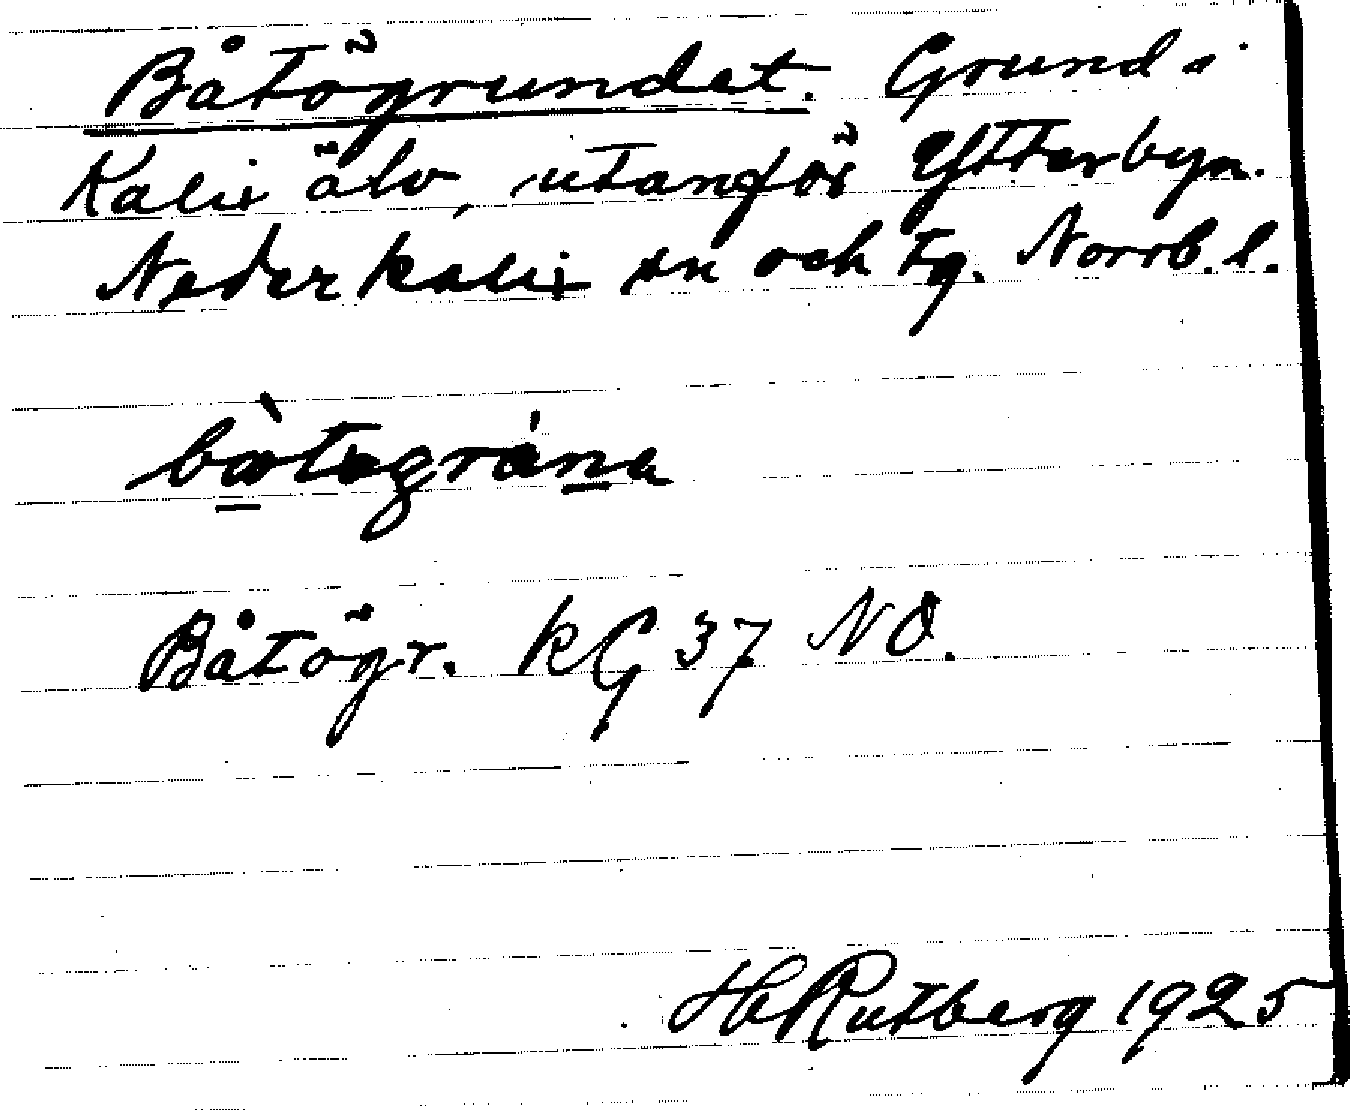 Båtögrundet. Grund i
Kalix älv, utanför Ytterbyn.
Nederkalix sn och tg. Norrb. l.
Båtögr. KG 37 NO.
H Rutberg 1925